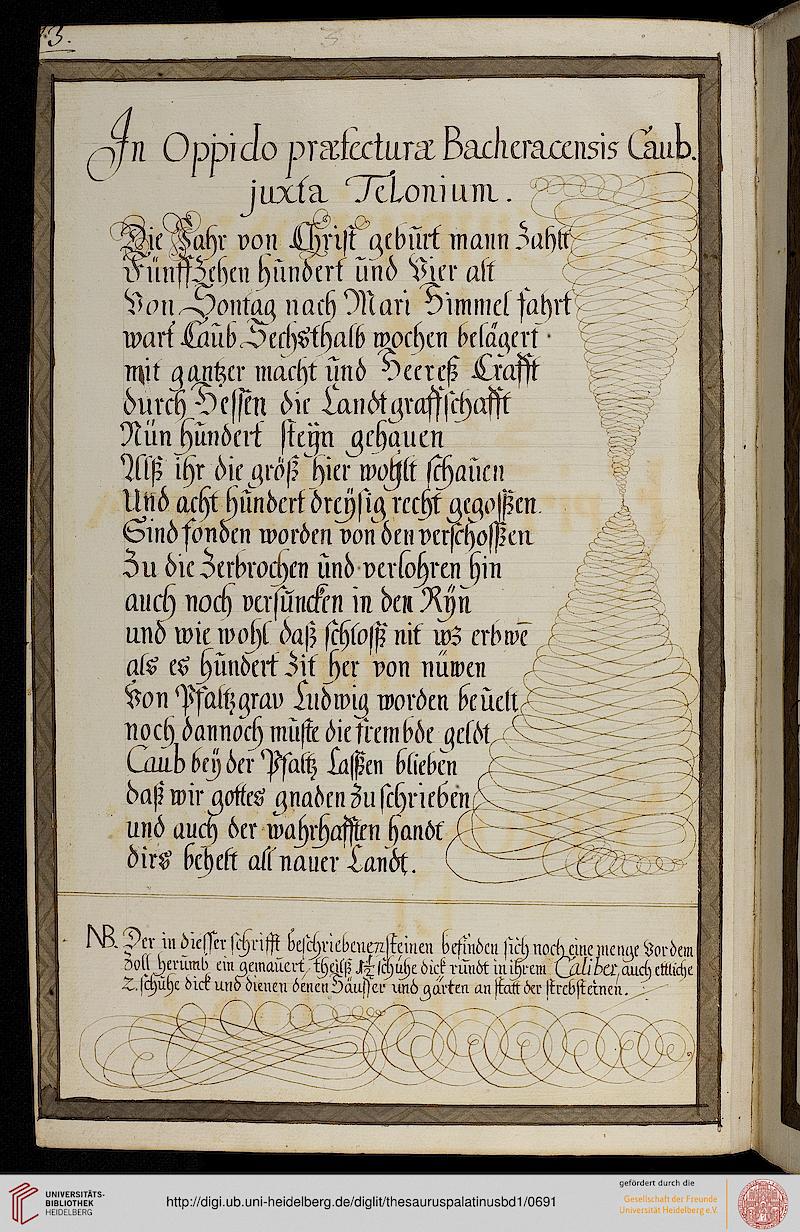 3.
In Oppido præfecturæ Bacheracensis Caub.
juxta Telonium.
Die Jahr von Christ gebürt mann Zahlt
Fünff Zehen hündert ünd Vier alt
Von Sontag nach Mari Himmel fahrt
wart Caüb Sechsthalb wochen belägert
mit gantzer macht ünd Heereß Crafft
dürch Hessen die Landtgraffschafft
Nün hündert steyn gehauen
Alß ihr die größ hier wohlt schaüen
Und acht hündert dreysig recht gegosßen.
Sind fonden worden von den verschosßen
Zu die Zerbrochen ünd verlohren hin
auch noch versüncken in den Ryn
und wie wohl daß schlosß nit wz erbwē
als es hündert Zit her von nüwen
Von Pfaltzgrav Ludwig worden beüelt
noch dannoch müste die frembde geldt
Caub bey der Pfaltz Lasßen blieben
daß wir gottes gnaden Zu schrieben
und auch der wahrhafften handt
dirs behelt all nauer Landt.
NB. Der in diesser schrifft beschriebenen steinen befinden sich noch eine menge Vor dem
Zoll herümb ein gemaüert, theilß 1½ schühe dick rundt in ihrem Caliber, auch ettliche
2. schühe dick und dienen denen Häusser und gärten an statt der strebsteinen.
UNIVERSITÄTS-
BIBLIOTHEK
HEIDELBERG
http://digi.ub.uni-heidelberg.de/diglit/thesauruspalatinusbd1/0691
gefördert durch die
Gesellschaft der Freunde
Universität Heidelberg e.V.